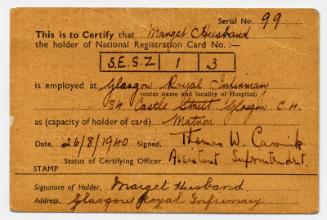 Serial No. 99
This is to Certify that Marget Husband
the holder of National Registration Card No. :—
S.E.S.Z 1 3
is employed at Glasgow Royal Infirmary
(enter name and locality of Hospital)
84 Castle Street Glasgow C.4.
as (capacity of holder of card) Matron
Date, 26/8/1940 Signed, Thomas W.
Status of Certifying Officer Assistant Superintendent.
STAMP
Signature of Holder, Marget Husband
Address, Glasgow Royal Infirmary